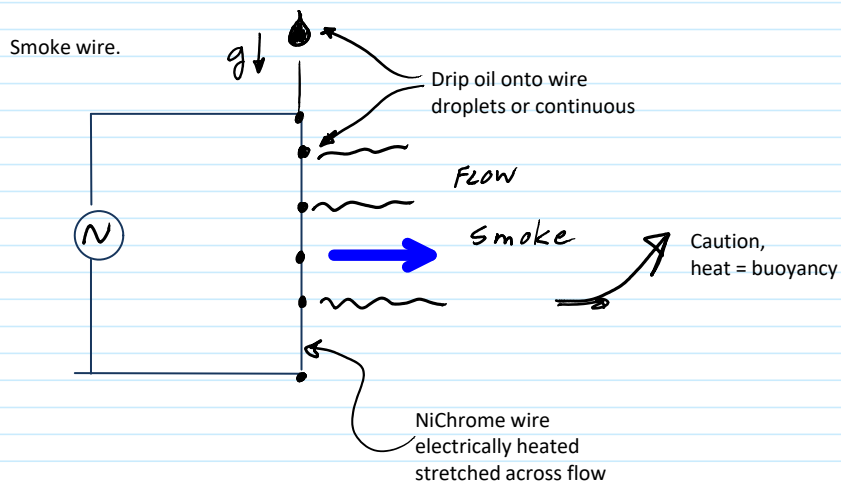 Smoke wire.
g
Drip oil onto wire
droplets or continuous
FLOW
N
smoke
Caution,
heat = buoyancy
NiChrome wire
electrically heated
stretched across flow